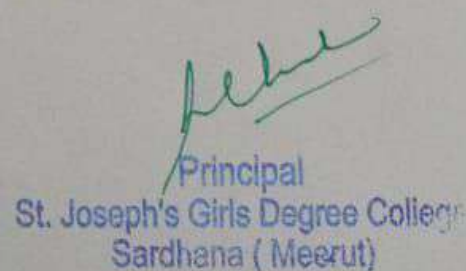 Principal
St. Joseph's Girls Degree College
Sardhana ( Meerut)